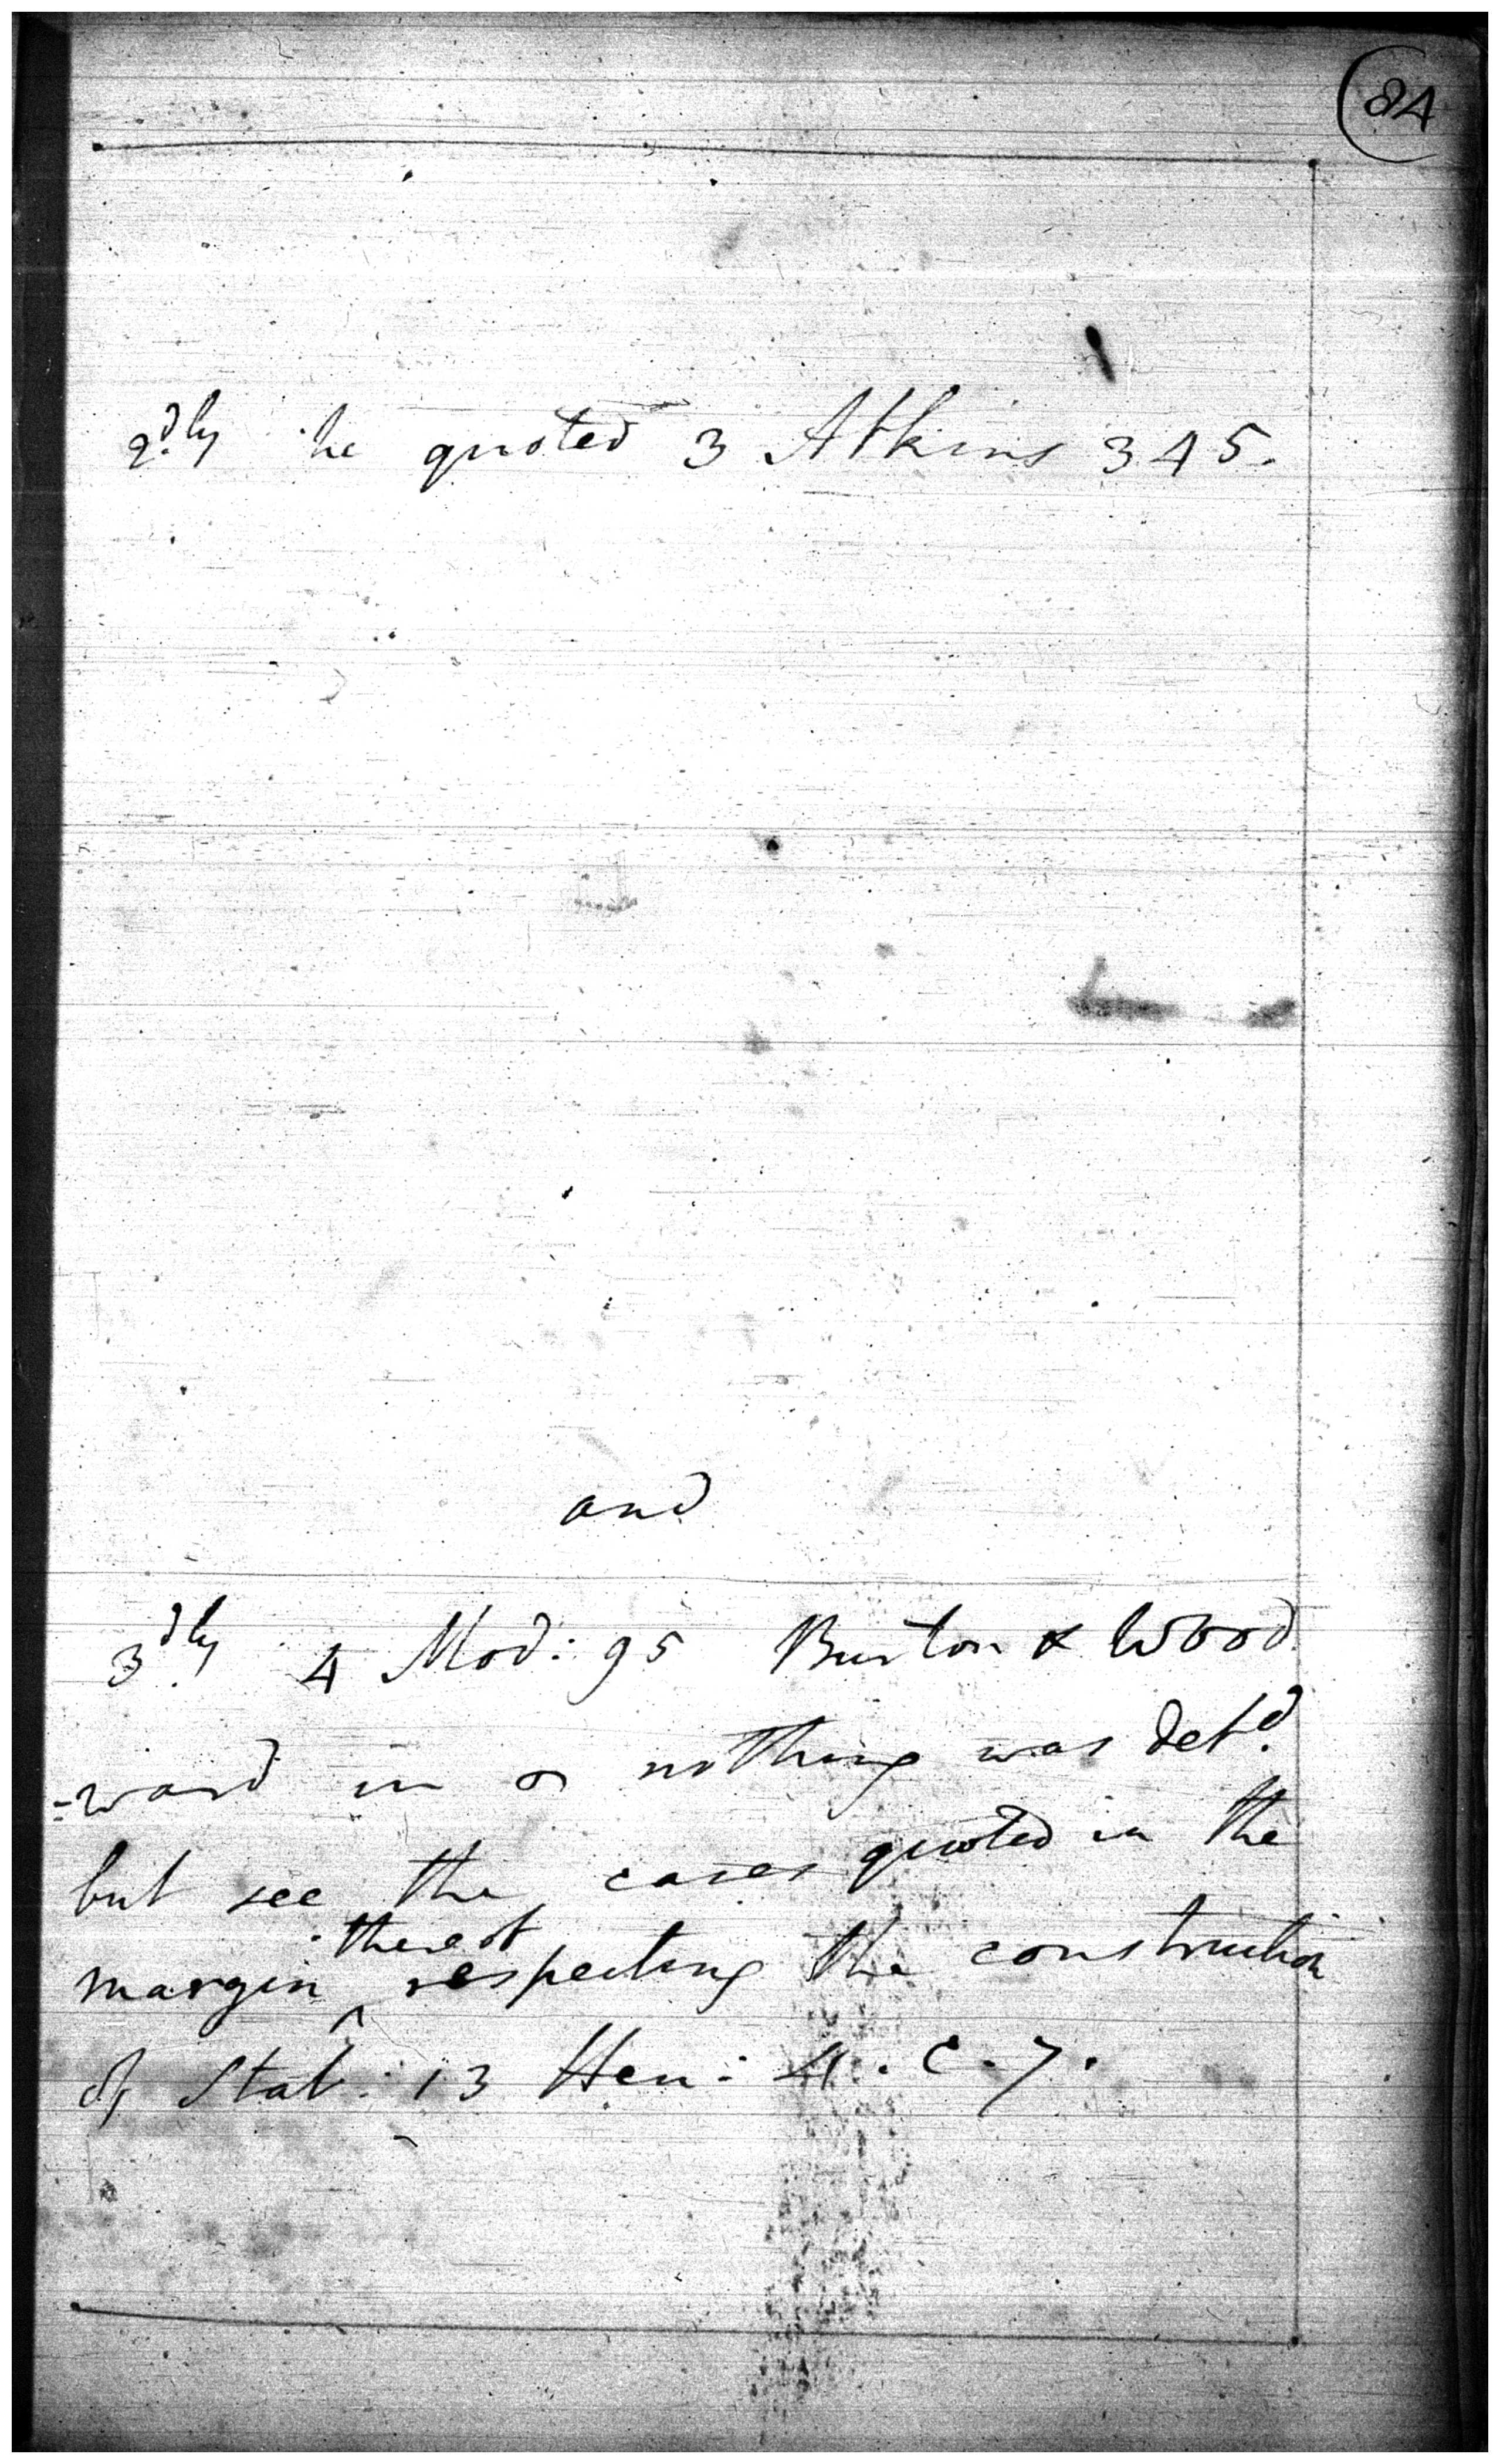 84
2dly he quoted 3 Atkins 345.
and
3dly 4 Mod: 95 Burton & Wood
=ward in nothing was detd.
but see the cases quoted in the
thereof
margin ^ respecting the construction
of Stat: 13 Hen: 4. C. 7.